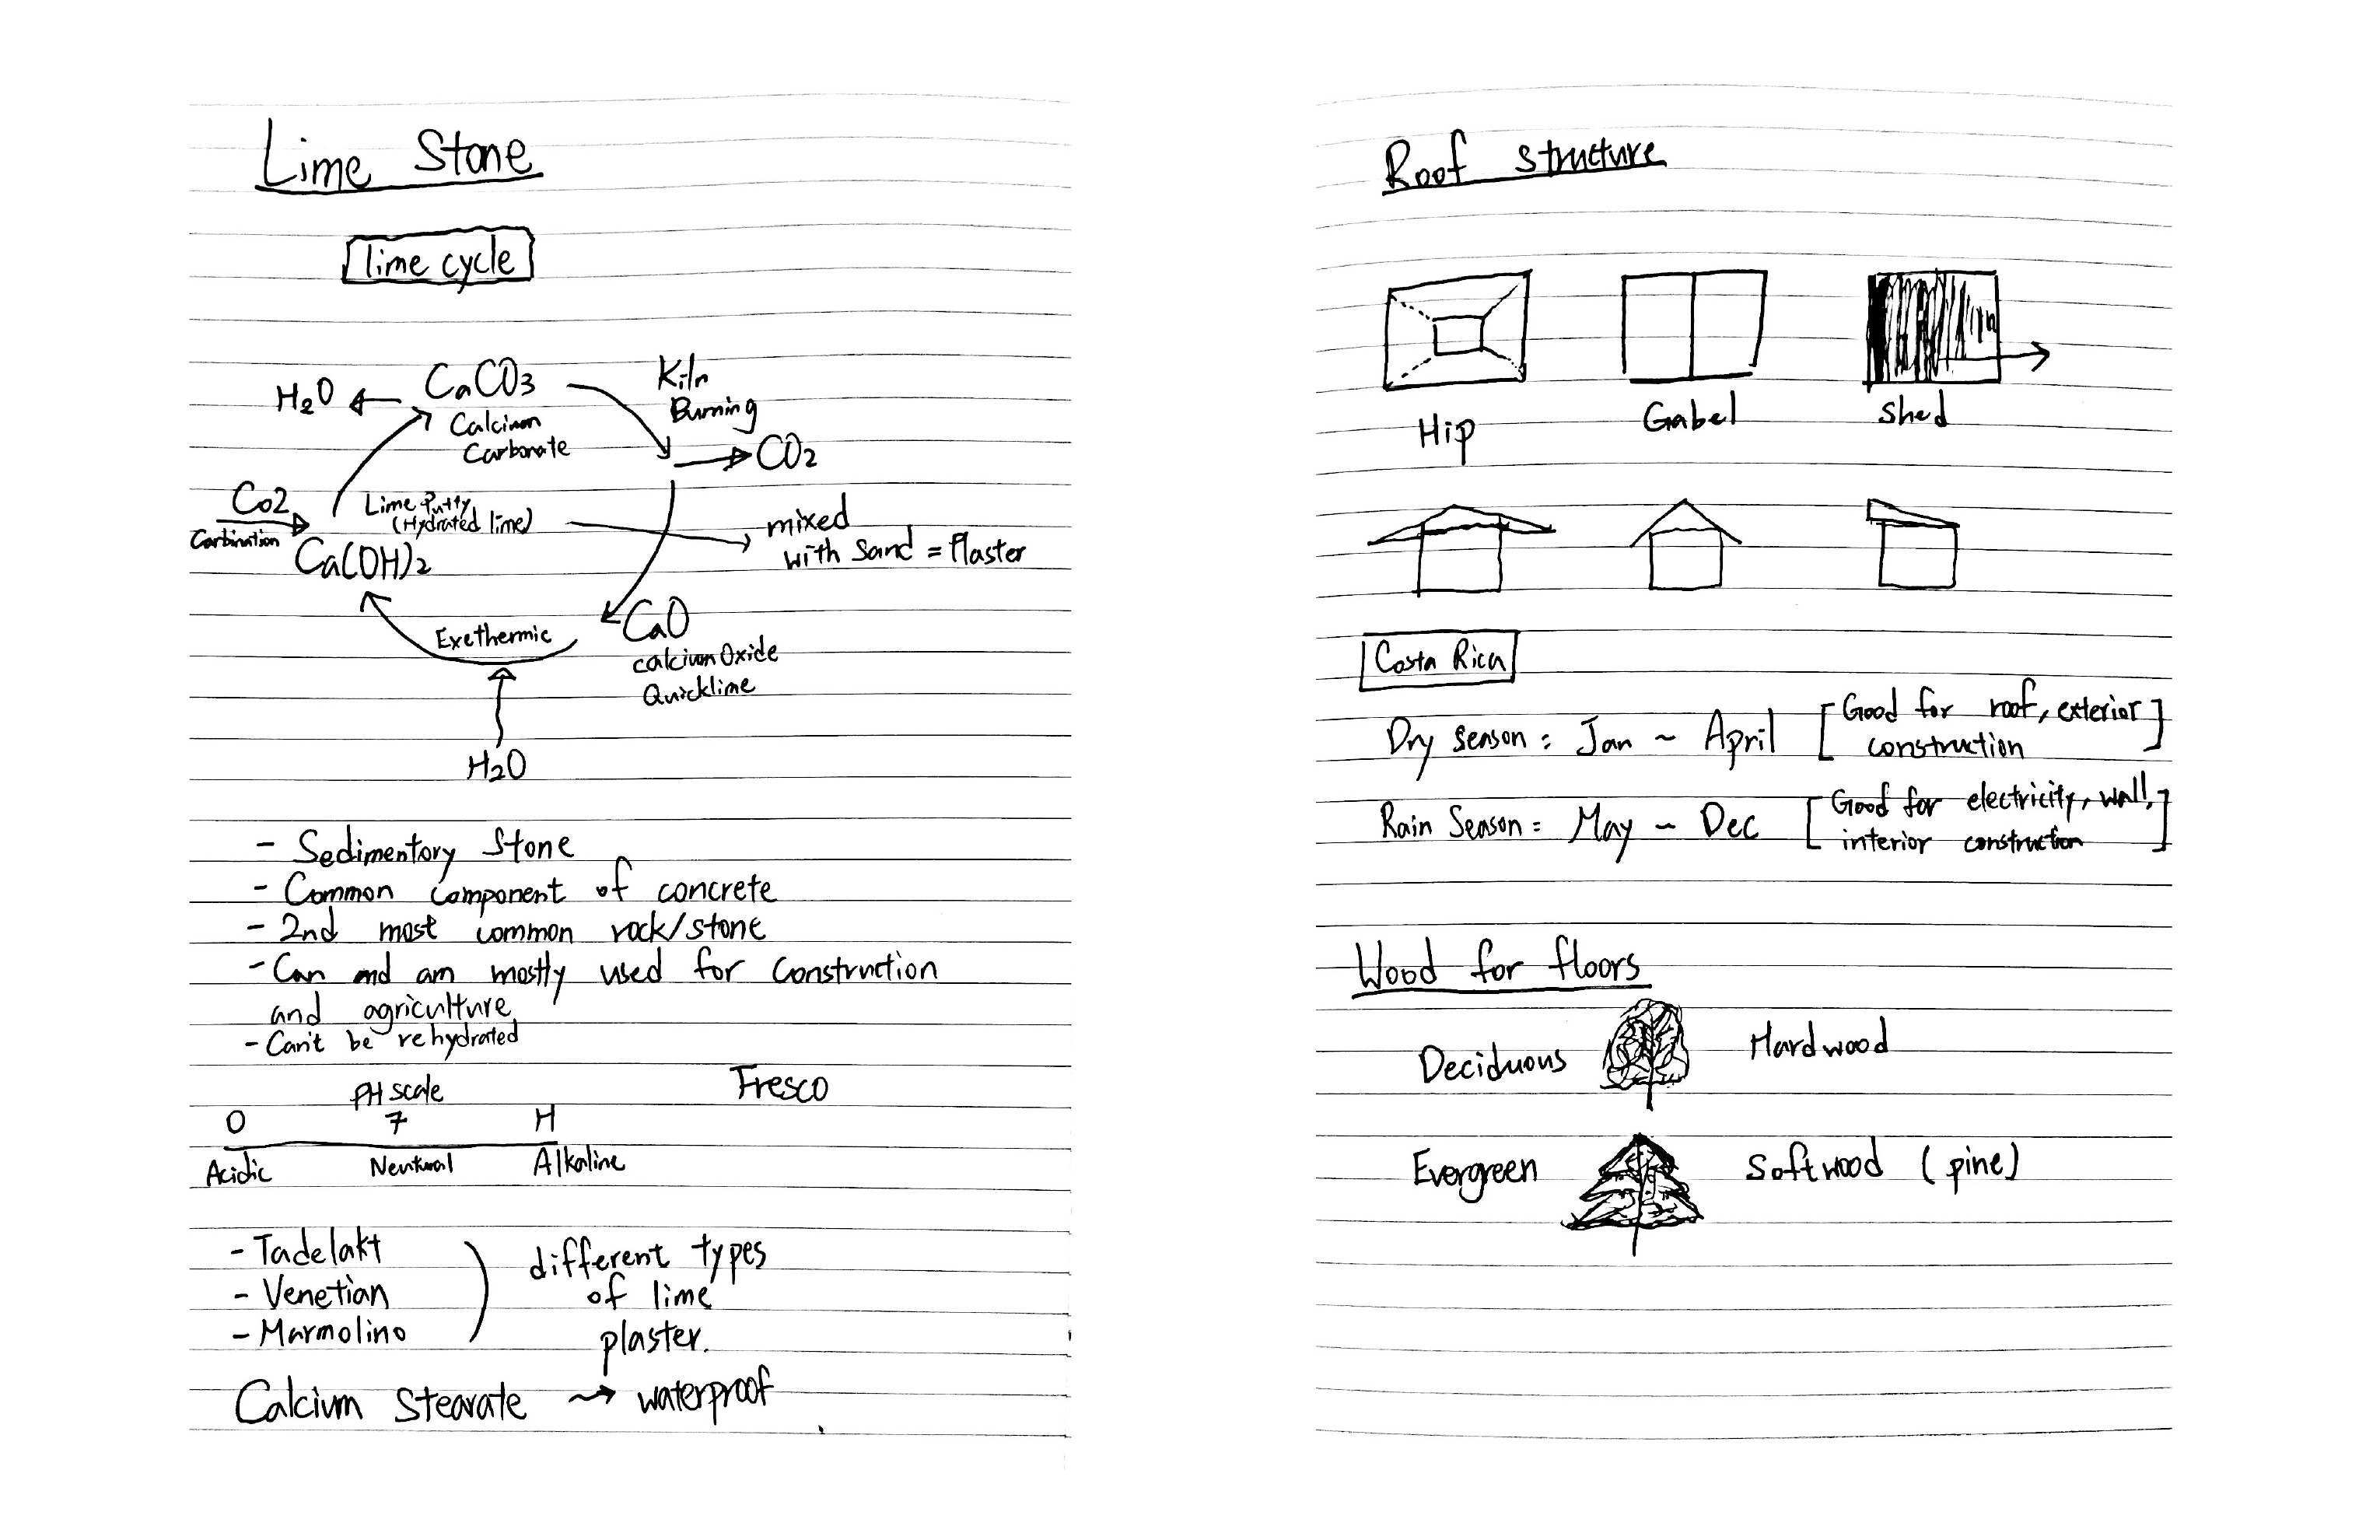 Lime Stone
lime cycle
H2O
CaCO3
Calcium
Carbonate
Kiln
Burning
CO2
Co2
Carbination
Lime Putty
(Hydrated lime)
Ca(OH)2
mixed
with Sand = Plaster
Exethermic
CaO
calcium Oxide
Quicklime
H2O
- Sedimentory Stone
- Common component of concrete
- 2nd most common rock/stone
- Can and am mostly used for construction
and agriculture
- Can't be rehydrated
PH scale
Fresco
0 7 14
Acidic Neutural Alkaline
- Tadelakt
- Venetian
- Marmolino
different types
of lime
plaster.
Calcium Stearate → waterproof
Roof structure
Hip Gabel Shed
Costa Rica
Dry season = Jan ~ April [Good for roof, exterior
construction]
Rain Season = May ~ Dec [Good for electricity, wall,
interior construction]
Wood for floors
Deciduous Hardwood
Evergreen Softwood (pine)